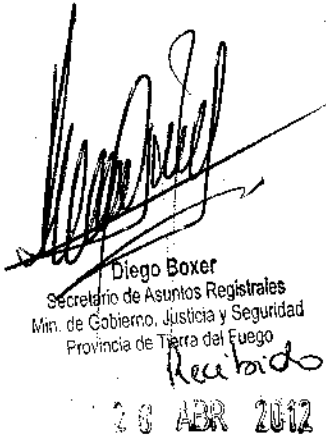 Diego Boxer
Secretario de Asuntos Registrales
Min. de Gobierno, Justicia y Seguridad
Provincia de Tierra del Fuego
Recibido
26 ABR 2012